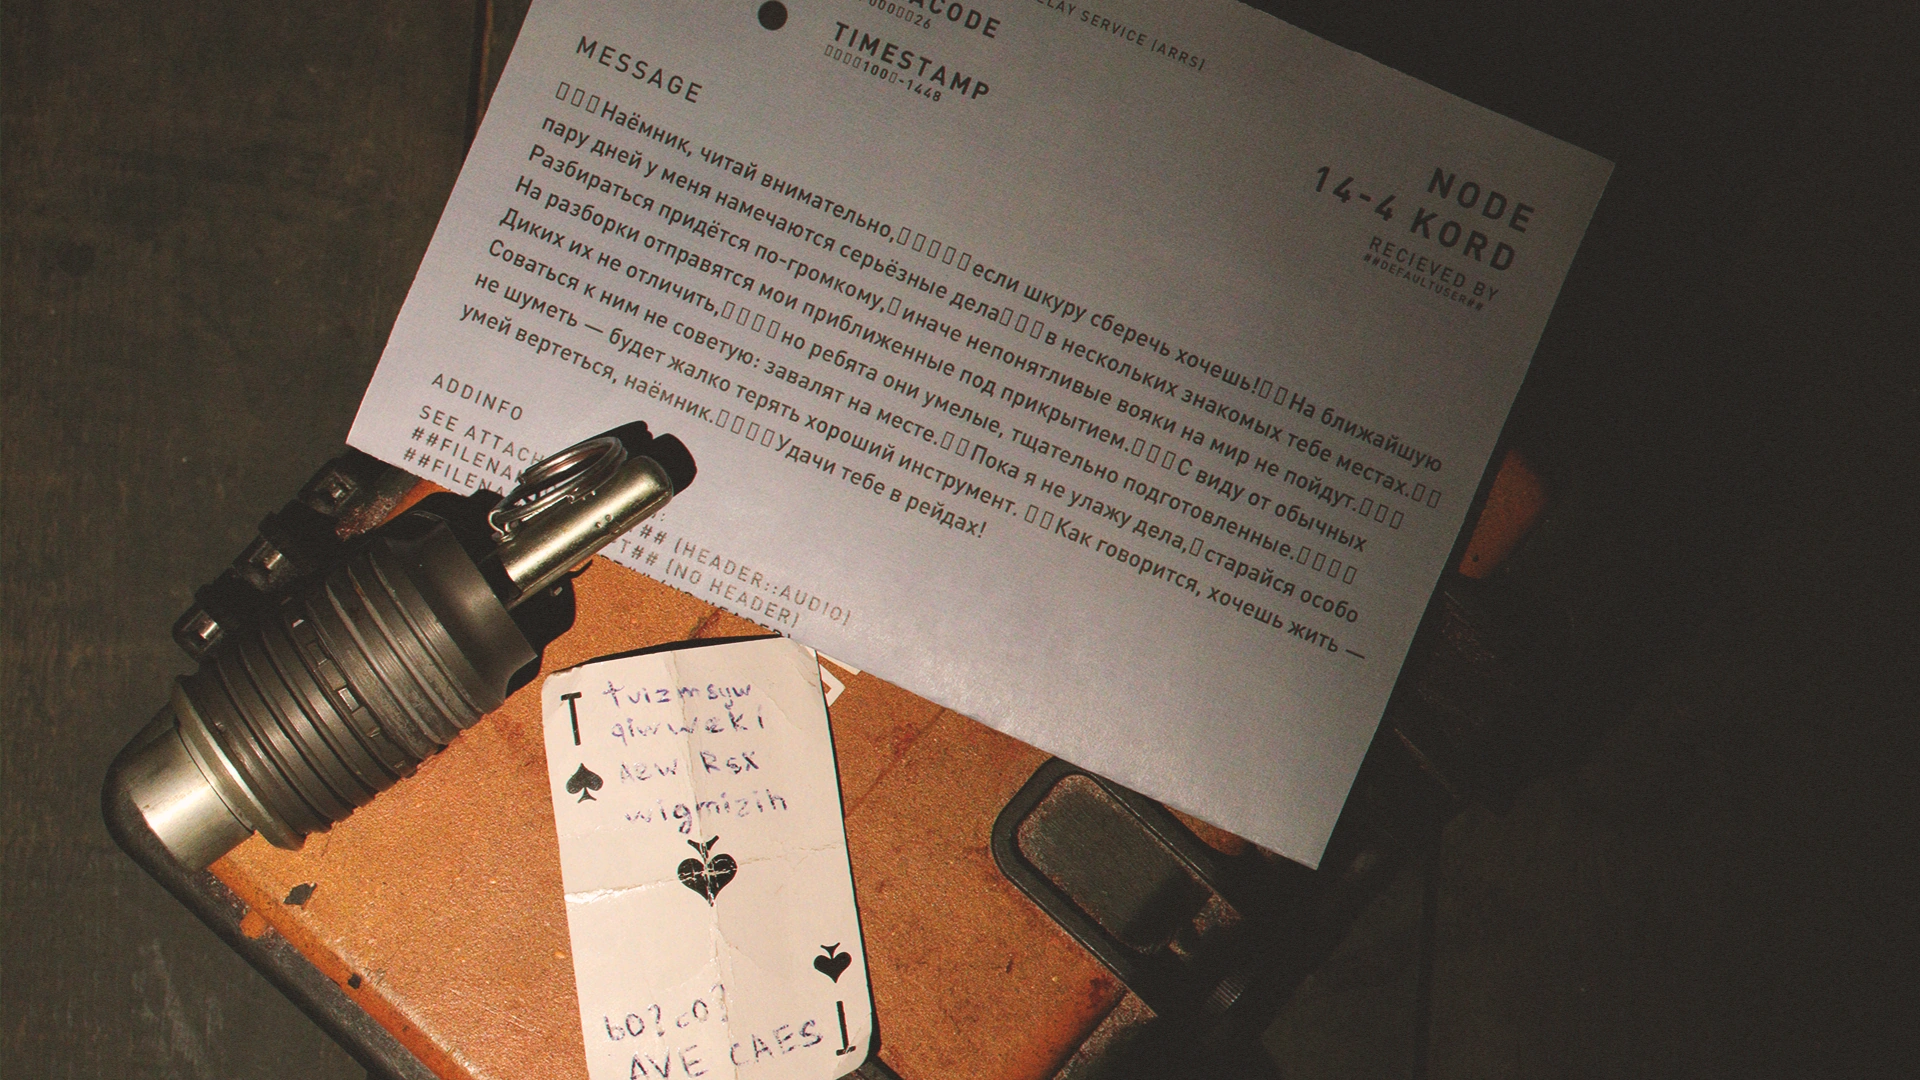 SERVICE (ARRS)
TIMESTAMP
▯▯▯▯100▯-1448
MESSAGE
▯▯▯Наёмник, читай внимательно,▯▯▯▯▯если шкуру сберечь хочешь!▯▯На ближайшую
пару дней у меня намечаются серьёзные дела▯▯▯в нескольких знакомых тебе местах.▯▯
Разбираться придётся по-громкому,▯иначе непонятливые вояки на мир не пойдут.▯▯▯
На разборки отправятся мои приближенные под прикрытием.▯▯▯С виду от обычных
Диких их не отличить,▯▯▯▯но ребята они умелые, тщательно подготовленные.▯▯▯▯
Соваться к ним не советую: завалят на месте.▯▯Пока я не улажу дела,▯старайся особо
не шуметь — будет жалко терять хороший инструмент. ▯▯Как говорится, хочешь жить —
умей вертеться, наёмник.▯▯▯▯Удачи тебе в рейдах!
NODE
14-4 KORD
RECIEVED BY
##DEFAULTUSER##
ADDINFO
SEE ATTACH
(HEADER::AUDIO)
(NO HEADER)
T
tvizmsyw
qiwweki
Aew Rsx
wigmizih
bO? cO?
AVE CAES
T